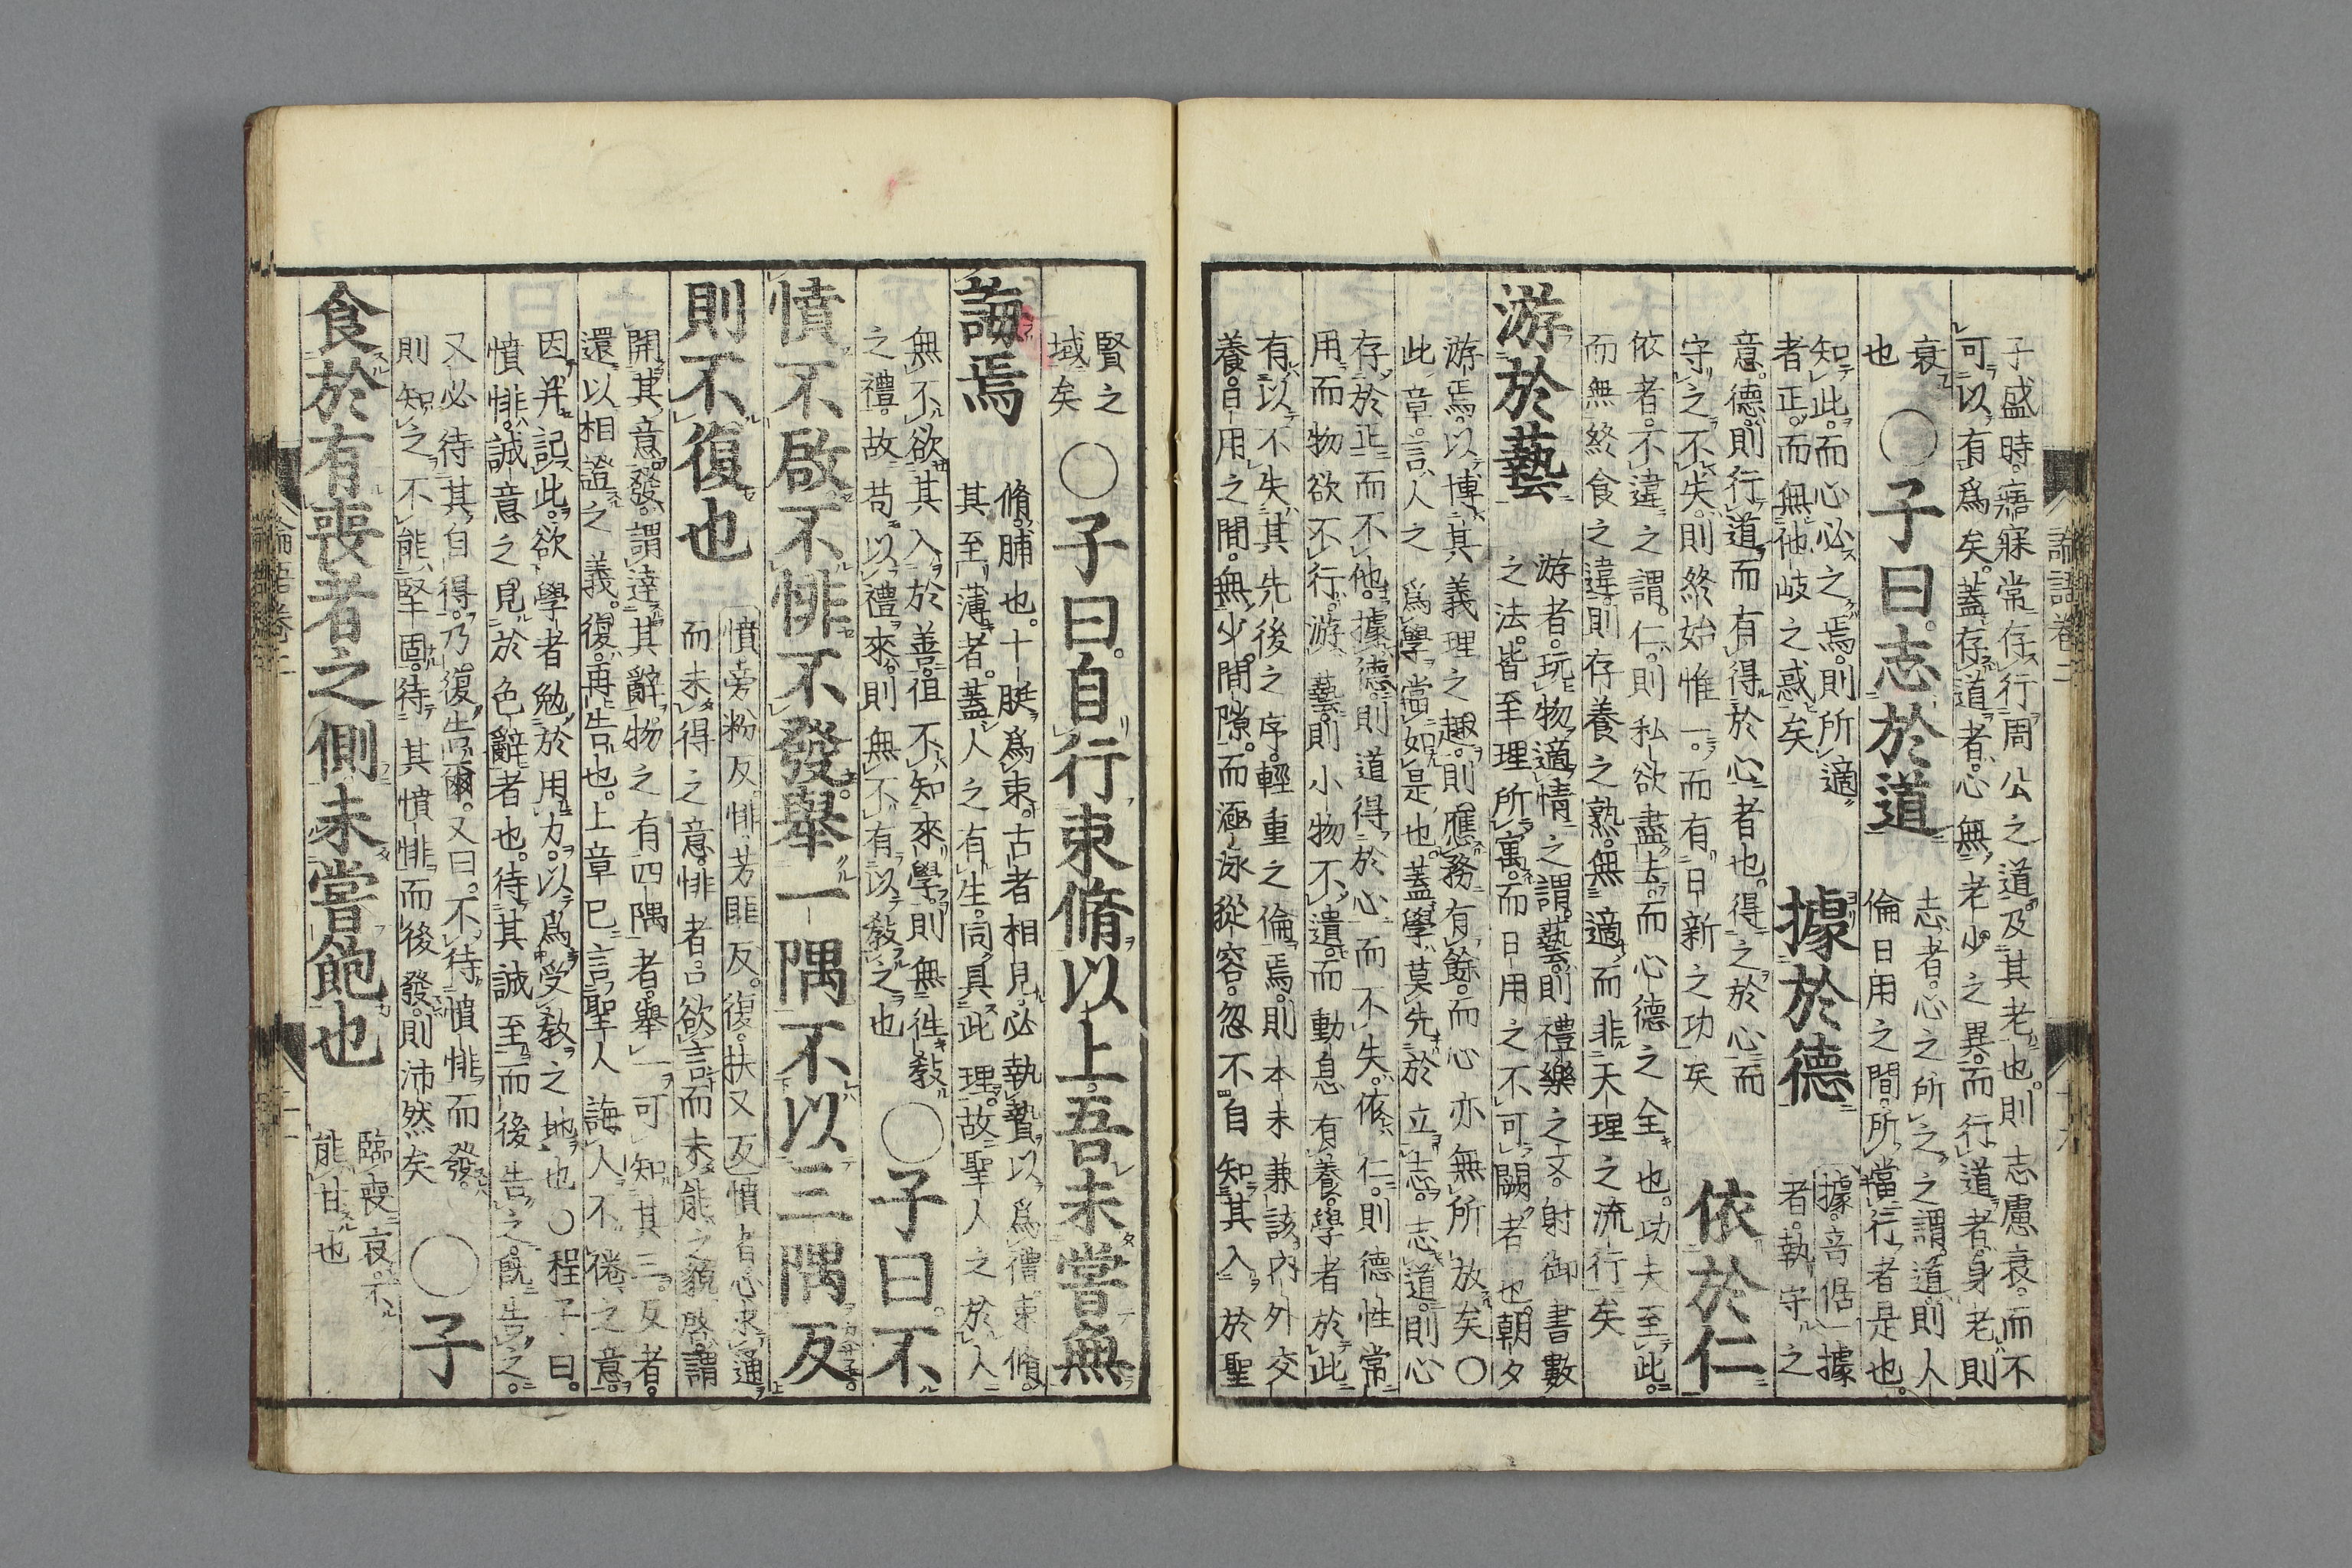 子盛時。寤寐常存行周公之道。及其老也。則志慮衰。而不
可以有爲矣。蓋存道者。心無老少之異。而行道者。身老則
衰
也
○子曰。志於道
志者。心之所之之謂。道。則人
倫日用之間。所當行者是也。
知此。而心必之焉。則所適
者正。而無他岐之惑矣
據於德
據。音倨據
者。執守之
意。德。則行道而有得於心者也。得之於心。而
守之不失。則終始惟一。而有日新之功矣
依於仁
依者。不違之謂。仁。則私欲盡去。而心德之全也。功夫至此。
而無終食之違。則存養之熟。無適而非天理之流行矣
游於藝
游者。玩物適情之謂。藝。則禮樂之文。射御書數
之法。皆至理所寓。而日用之不可闕者也。朝夕
游焉。以博其義理之趣。則應務有餘。而心亦無所放矣○
此章。言人之爲學。當如是也。蓋學莫先於立志。志道。則心
存於正。而不他。據德。則道得於心。而不失。依仁。則德性常
用。而物欲不行。游藝。則小物不遺。而動息有養。學者於此
有以不失其先後之序。輕重之倫焉。則本末兼該。內外交
養。日用之間。無少間隙。而涵泳從容。忽不自知其入於聖
論語卷二
賢之
域矣
○子曰。自行束脩以上。吾未嘗無
誨焉
脩。脯也。十脡爲束。古者相見。必執贄以爲禮。束脩。
其至薄者。蓋人之有生。同具此理。故聖人之於人
無不欲其入於善。徂不知來學。則無往敎
之禮。故苟以禮來。則無不有以敎之也
○子曰。不
憤不啟。不悱不發。舉一隅不以三隅反
則不復也
憤。旁粉反。悱。芳匪反。復。扶又反憤者。心求通
而未得之意。悱者。口欲言而未能之貌。啟。謂
開其意。發。謂達其辭。物之有四隅者。舉一。可知其三。反者。
還以相證之義。復。再告也。上章已言聖人誨人不倦之意。
因幷記此。欲學者勉於用力。以爲受敎之地也○程子曰。
憤悱。誠意之見於色辭者也。待其誠至。而後告之。既告之。
又必待其自得。乃復告爾。又曰。不待憤悱而發。
則知之不能堅固。待其憤悱而後發。則沛然矣
○子
食於有喪者之側。未嘗飽也
臨喪哀。不
能甘也